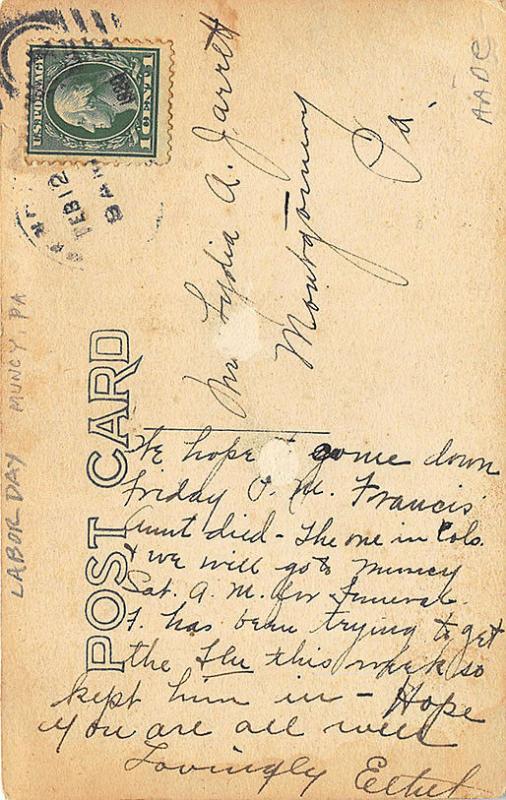 U.S. POSTAGE
1 CENT 1
FEB 12
9 A
Lydia A. Jarrett
Montgomery
Pa.
AADC
LABOR DAY MUNCY, PA
POST CARD
We hope to come down
Friday P. M. Francis'
Aunt died - The one in Colo.
& we will go to Muncy
Sat. A. M. for funeral.
F. has been trying to get
the Flu this week so
kept him in - Hope
you are all well
Lovingly Ethel